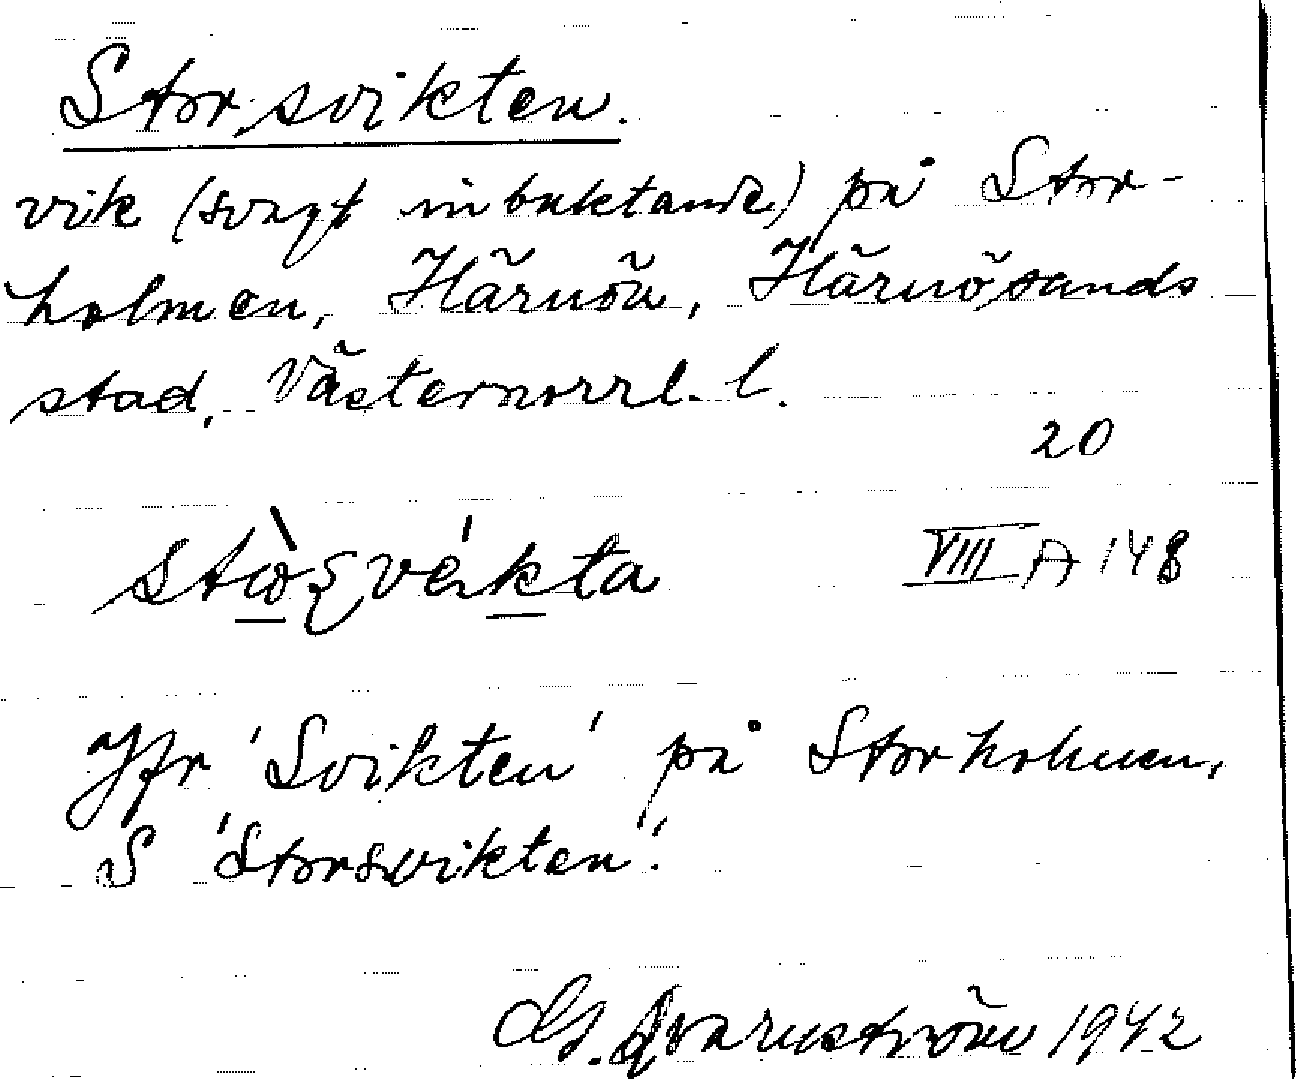 Storsvikten.
vik (svagt inbuktande) på Stor-
holmen, Härnön, Härnösands
stad, Västernorrl. l.
20
VIII A 148
Jfr 'Svikten' på Storholmen,
S 'Storsvikten'.
G. Qvarnström 1942